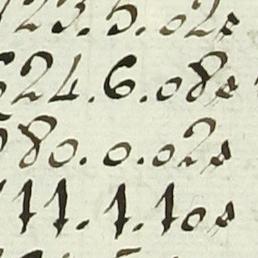 23.5.02s
24.6.08s
80.0.02s
11.1.10s